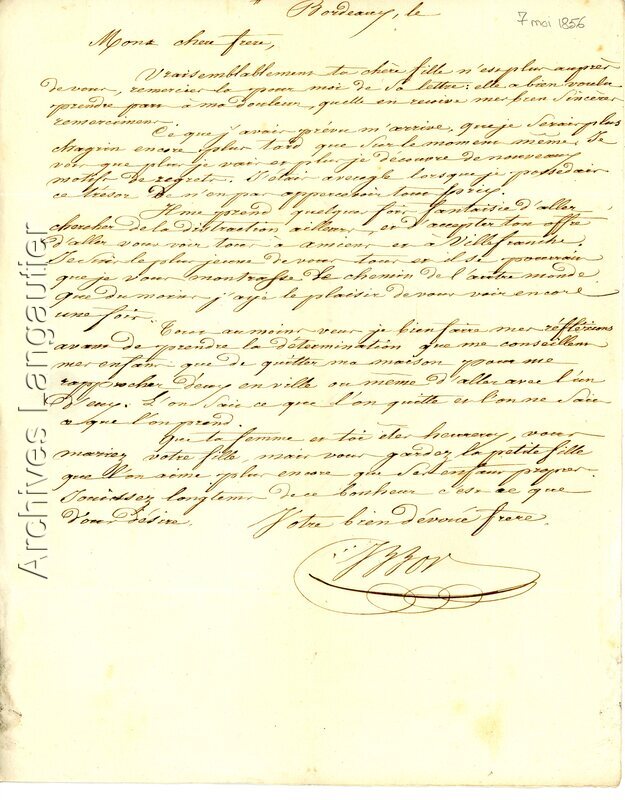 Bordeaux, le
7 mai 1856
Mon cher frère,
Vraisemblablement ta chère fille n'est plus auprès
de vous, remerciez la pour moi de sa lettre: elle a bien voulu
prendre part à ma douleur, qu'elle en reçoive mes bien sincères
remerciemens.
Ce que j'avais prévu m'arrive, que je serais plus
chagrin encore plus tard que sur le moment même. Je
vois que plus je vais et plus je découvre de nouveaux
motifs de regrets. J'étais aveugle lorsque je possédais
ce trésor de n'en pas appercevoir tout le prix.
Il me prend quelque fois fantaisie d'aller
chercher de la distraction ailleurs, et d'accepter ton offre
d'aller vous voir tous à Amiens et à Villefranche.
Je suis le plus jeune de vous tous et il se pourrait
que je vous montrasse le chemin de l'autre monde
que du moins j'aye le plaisir de vous voir encore
une fois.
Tout au moins veux je bien faire mes réflexions
avant de prendre la détermination que me conseillent
mes enfans que de quitter ma maison pour me
rapprocher d'eux en ville ou même d'aller avec l'un
d'eux. L'on sait ce que l'on quitte et l'on ne sait
ce que l'on prend.
Que ta femme et toi êtes heureux, vous
mariez votre fille mais vous gardez la petite fille
que l'on aime plus encore que ses enfans propres.
Jouissez longtems de ce bonheur c'est ce que
vous désire. Votre bien dévoué frere
Archives Langautier